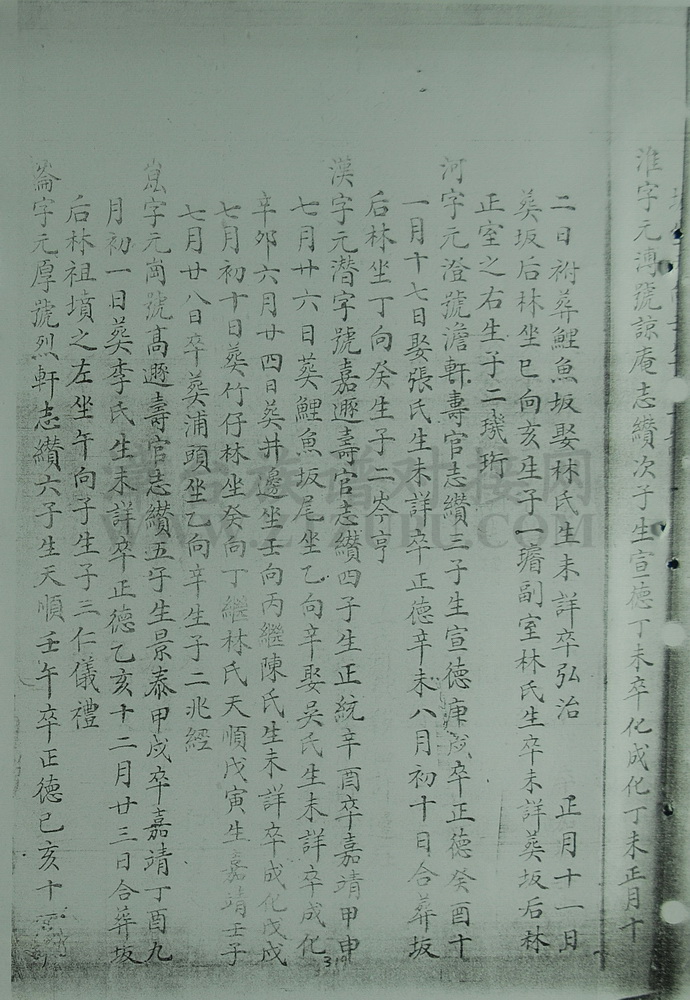 淮字元溥號諒庵志纉次子生宣德丁未卒化成化丁未正月十
二日祔葬鯉魚坂娶林氏生未詳卒弘治 正月十一日
葵坂后林坐巳向亥生子一璿副室林氏生卒未詳葵坂后林
正室之右生子二璣珩
河字元澄號澹軒壽官志纉三子生宣德庚戌卒正德癸酉十
一月十七日娶張氏生未詳卒正德辛未八月初十日合葬坂
后林坐丁向癸生子二岑亨
漢字元潛字號嘉遯壽官志纉四子生正統辛酉卒嘉靖甲申
七月廿六日葵鯉魚坂尾坐乙向辛娶吳氏生未詳卒成化
辛卯六月廿四日葵井邊坐壬向丙繼陳氏生未詳卒成化戊戌
七月初十日葵竹仔林坐癸向丁繼林氏天順戊寅生嘉靖壬子
七月廿八日卒葵浦頭坐乙向辛生子二兆經
嵬字元崗號高遯壽官志纉五子生景泰甲戌卒嘉靖丁酉九
月初一日葵李氏生未詳卒正德乙亥十二月廿三日合葬坂
后林祖墳之左坐午向子生子三仁儀禮
崙字元厚號烈軒志纉六子生天順壬午卒正德己亥十
319